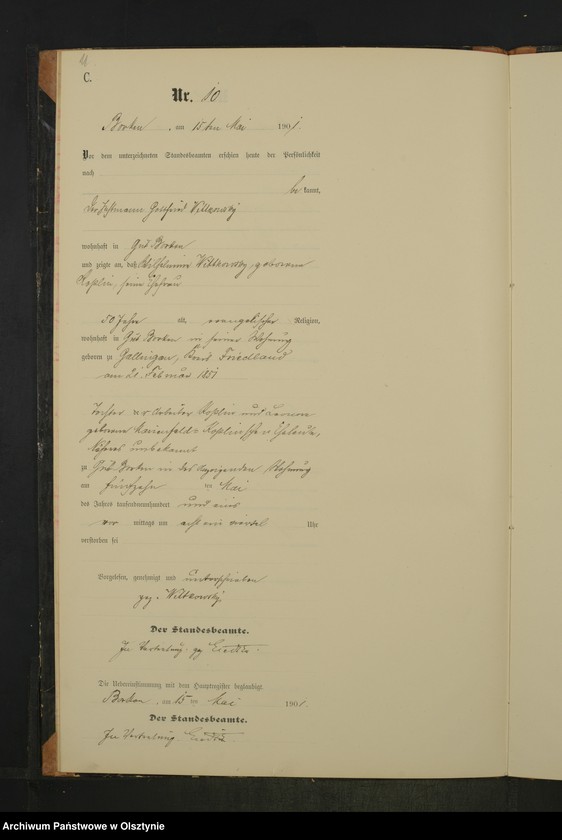 C.
Nr. 10
Borken, am 15ten Mai 1901.
Vor dem unterzeichneten Standesbeamten erschien heute der Persönlichkeit
nach
be kannt,
der Gottfried Wittkowsky
wohnhaft in Gut Borken
und zeigte an, daß Wilhelmine Wittkowsky, geborene
Koslin, seine Ehefrau
50 Jahr alt, evangelischer Religion,
wohnhaft in Gut Borken in seiner Wohnung
geboren zu Gallingen, Kreis Friedland
am 21. Februar 1851
Tochter der Arbeiter Koslin und
geborene Marienfeld Eheleute,
Näheres unbekannt
zu Gut Borken in des Anzeigenden Wohnung
am fünfzehn ten Mai
des Jahres tausendneunhundert und eins
vor mittags um acht ein viertel Uhr
verstorben sei
Vorgelesen, genehmigt und unterschrieben
gez. Wittkowsky.
Der Standesbeamte.
In Vertretung. gez.
Die Uebereinstimmung mit dem Hauptregister beglaubigt.
Borken, am 15 ten Mai 1901.
Der Standesbeamte.
In Vertretung
Archiwum Państwowe w Olsztynie